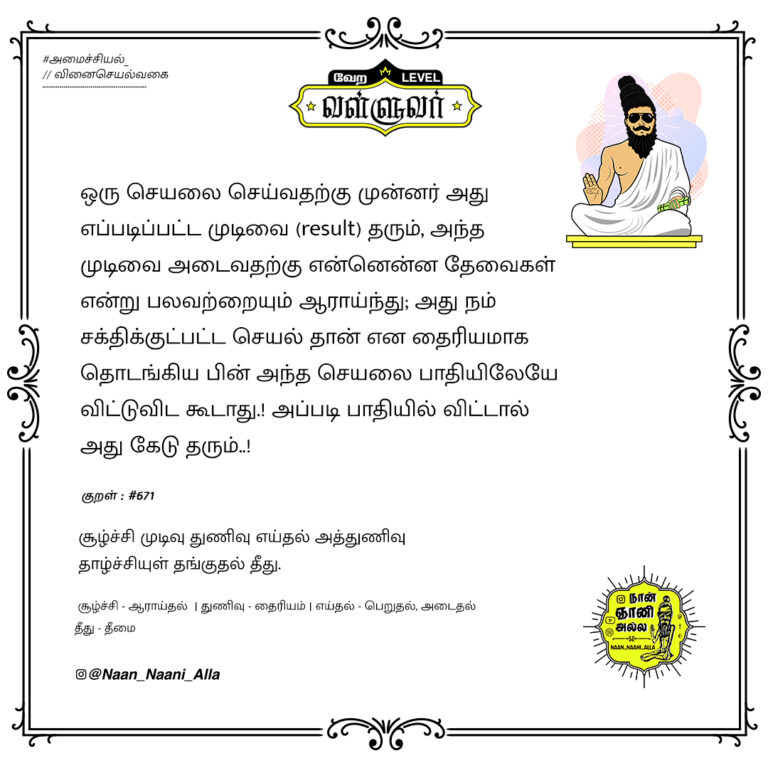 #அமைச்சியல்_
// வினைசெயல்வகை
வேற LEVEL
வள்ளுவர்
ஒரு செயலை செய்வதற்கு முன்னர் அது
எப்படிப்பட்ட முடிவை (result) தரும், அந்த
முடிவை அடைவதற்கு என்னென்ன தேவைகள்
என்று பலவற்றையும் ஆராய்ந்து; அது நம்
சக்திக்குட்பட்ட செயல் தான் என தைரியமாக
தொடங்கிய பின் அந்த செயலை பாதியிலேயே
விட்டுவிட கூடாது.! அப்படி பாதியில் விட்டால்
அது கேடு தரும்..!
குறள் : #671
சூழ்ச்சி முடிவு துணிவு எய்தல் அத்துணிவு
தாழ்ச்சியுள் தங்குதல் தீது.
சூழ்ச்சி - ஆராய்தல் | துணிவு - தைரியம் | எய்தல் - பெறுதல், அடைதல்
தீது - தீமை
@Naan_Naani_Alla
நான்
ஞானி
அல்ல
NAAN_NAANI_ALLA